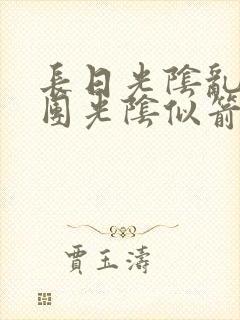 長日光陰亂
團光陰似箭
賈玉濤